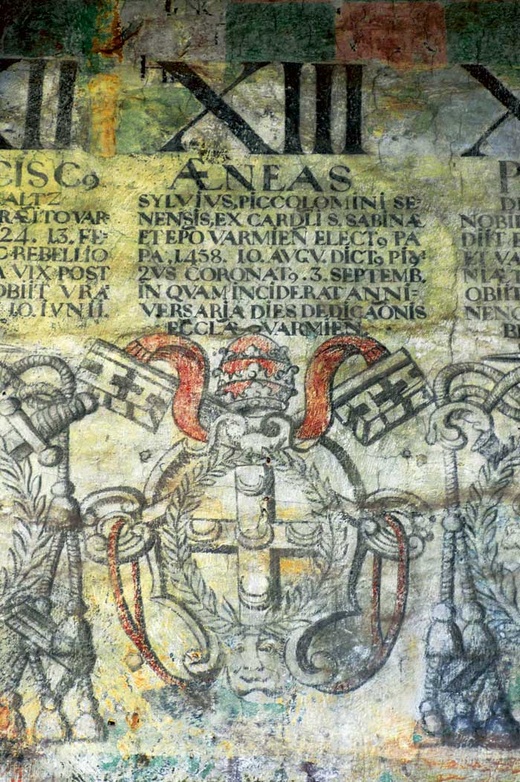 XII
CISC9
ALTZ
RÆJTO VAR
24. 13. FE-
REBELLIO
A VIX POST
OBIIT VRA
10. IVNII.
XIII
ÆNEAS
SYLVIVS, PICCOLOMINI SE-
NENSIS, EX CARDLI S. SABINÆ
ET EPO VARMIEN ELECT9 PA
PA. 1458. 10. AVGV. DICT9 PI9
2VS CORONAT9. 3. SEPTEMB.
IN QVAM INCIDERAT ANNI-
VERSARIA DIES DEDICAONIS
ECCLÆ VARMIEN.
X
P
DE
NOBI
DIIT E
NIÆ
OBIIT
NENC